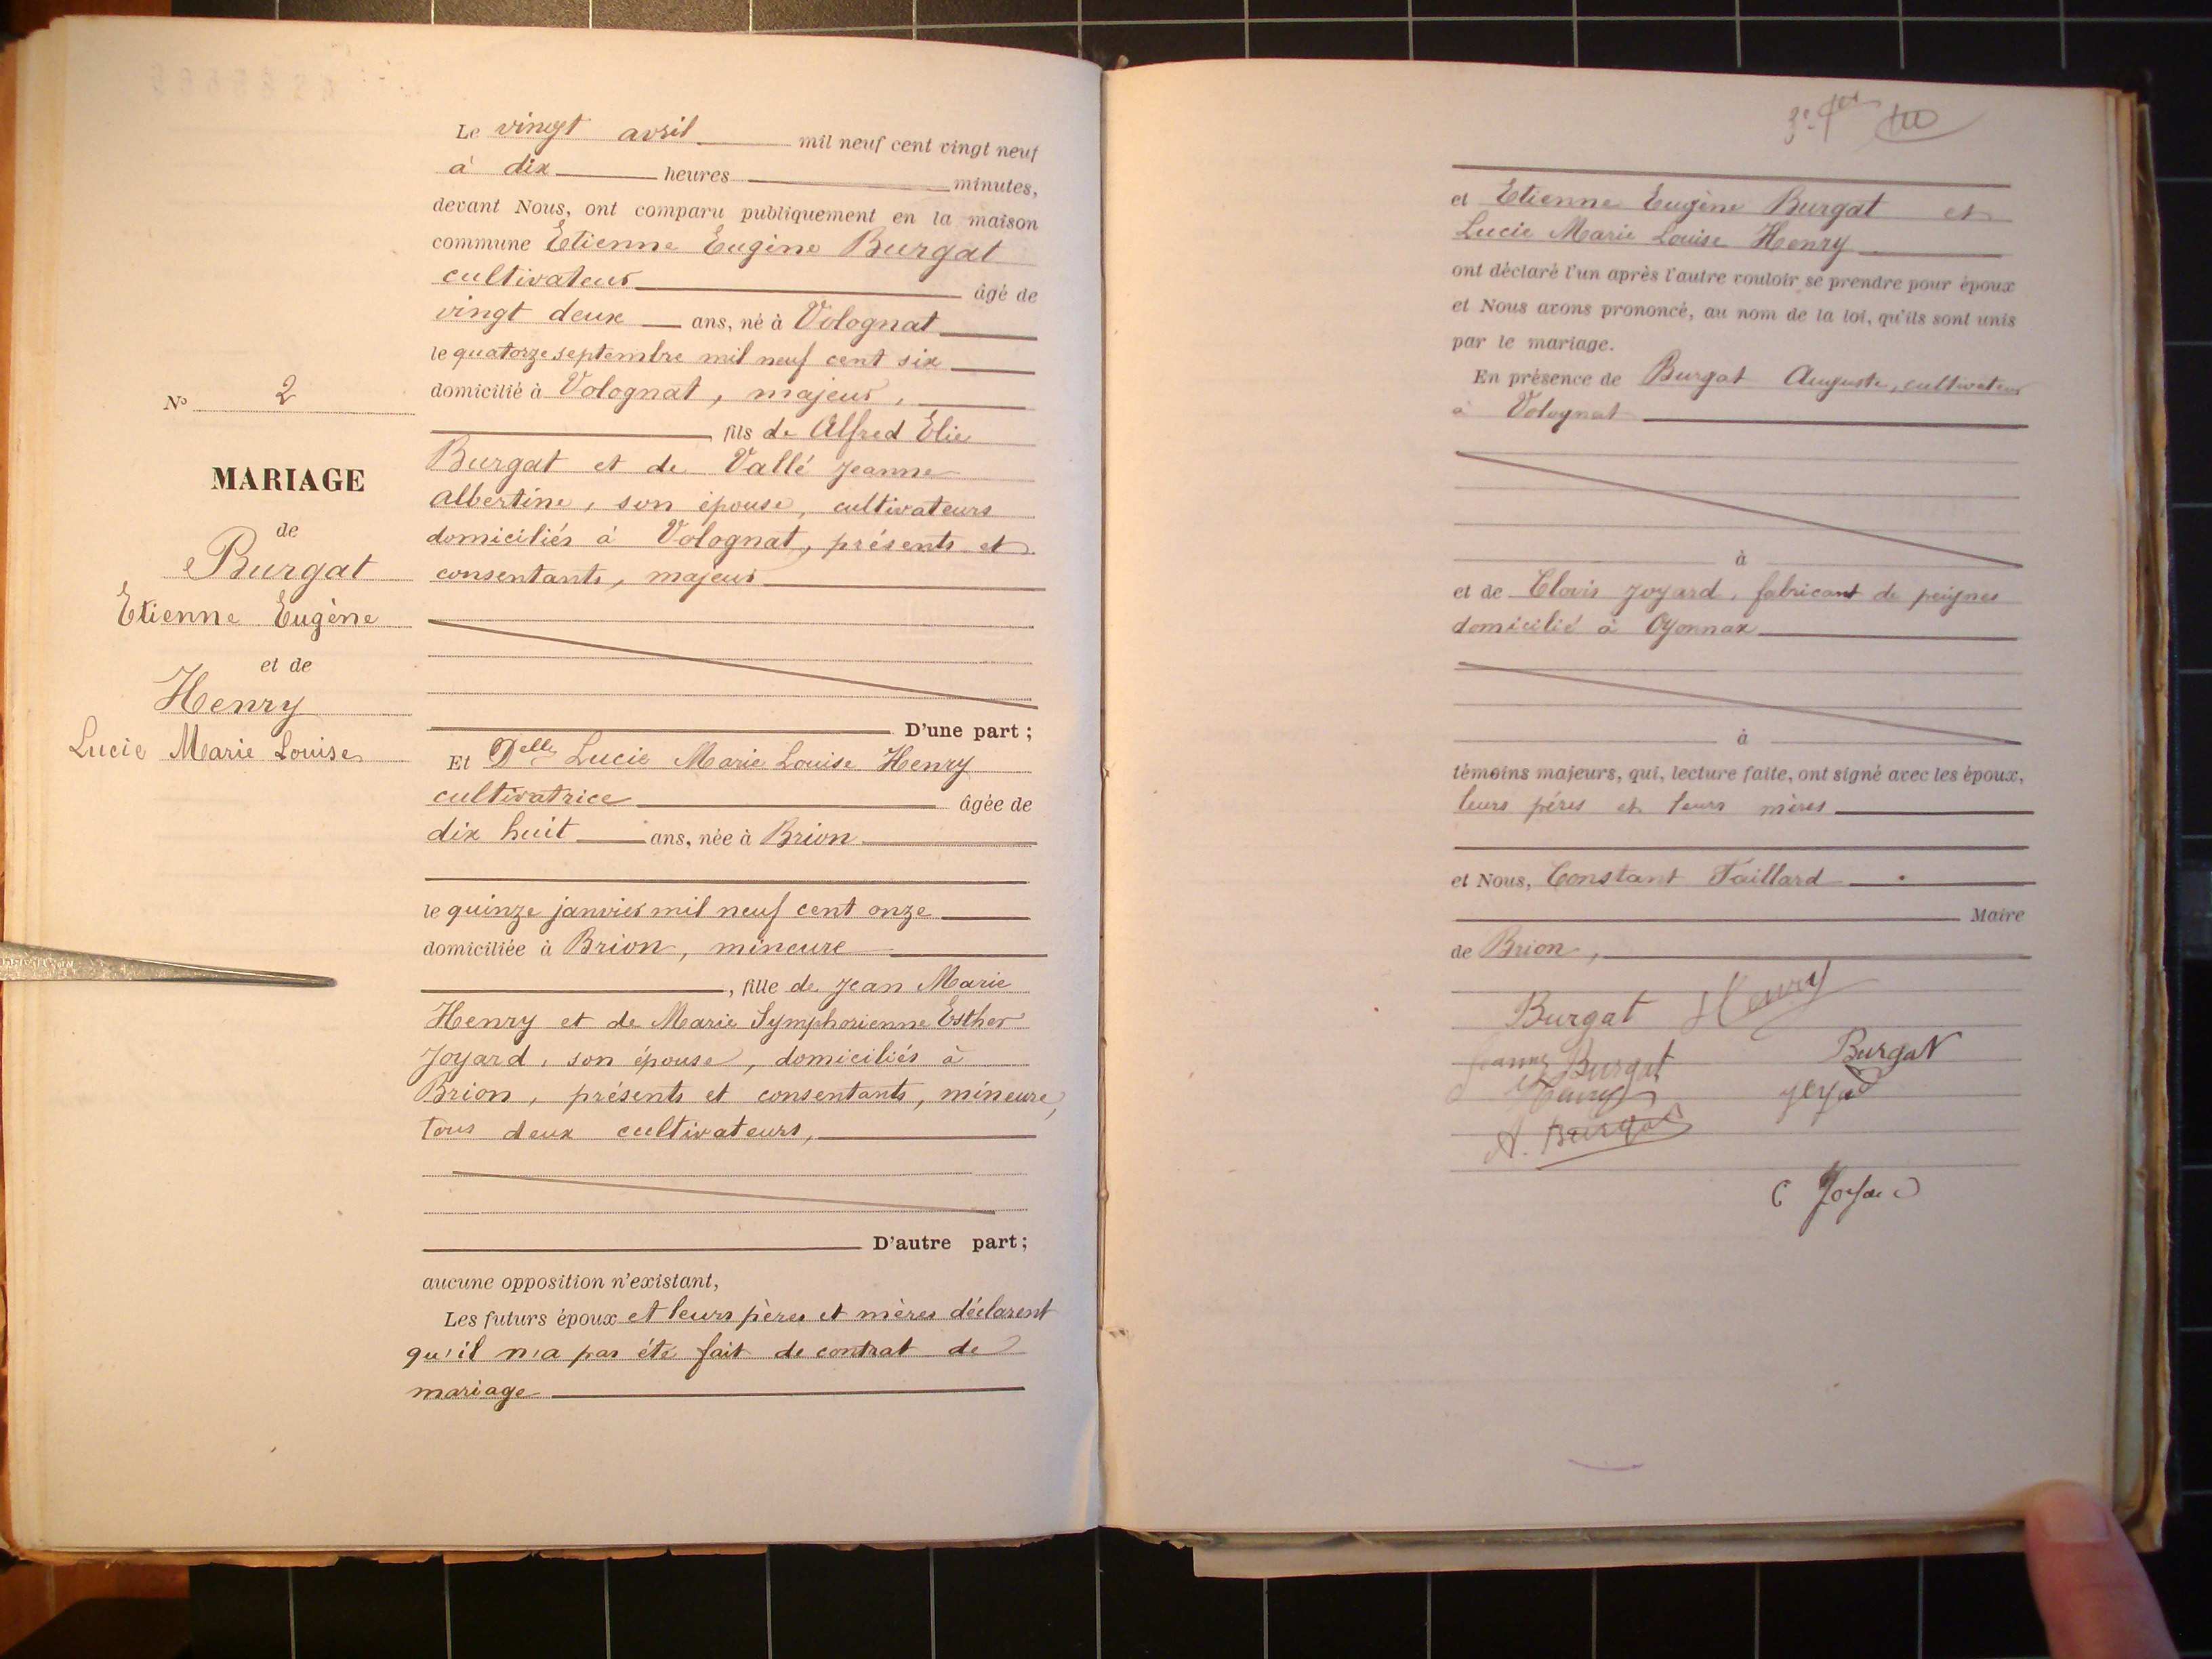 Le vingt avril mil neuf cent vingt neuf
à dix heures minutes,
devant Nous, ont comparu publiquement en la maison
commune Etienne Eugène Burgat
cultivateur âgé de
vingt deux ans, né à Volognat
le quatorze septembre mil neuf cent six
domicilié à Volognat, majeur,
fils de Alfred Elie
Burgat et de Vallé Jeanne
Albertine, son épouse, cultivateurs
domiciliés à Volognat, présents et
consentants, majeur
D'une part ;
Et Delle Lucie Marie Louise Henry
cultivatrice âgée de
dix huit ans, née à Brion
le quinze janvier mil neuf cent onze
domiciliée à Brion, mineure
, fille de Jean Marie
Henry et de Marie Symphorienne Esther
Joyard, son épouse, domiciliés à
Brion, présents et consentants, mineure,
tous deux cultivateurs,
D'autre part ;
aucune opposition n'existant,
Les futurs époux et leurs pères et mères déclarent
qu'il n'a pas été fait de contrat de
mariage
N° 2
MARIAGE
de
Burgat
Etienne Eugène
et de
Henry
Lucie Marie Louise
et Etienne Eugène Burgat et
Lucie Marie Louise Henry
ont déclaré l'un après l'autre vouloir se prendre pour époux
et Nous avons prononcé, au nom de la loi, qu'ils sont unis
par le mariage.
En présence de Burgat Auguste, cultivateur
à Volognat
à
et de Clovis Joyard, fabricant de peignes
domicilié à Oyonnax
à
témoins majeurs, qui, lecture faite, ont signé avec les époux,
leurs pères et leurs mères
et Nous, Constant Taillard
Maire
de Brion,
Burgat Henry
Jeanne Burgat Burgat
Henry Joyard
A. Burgat
C Joyard